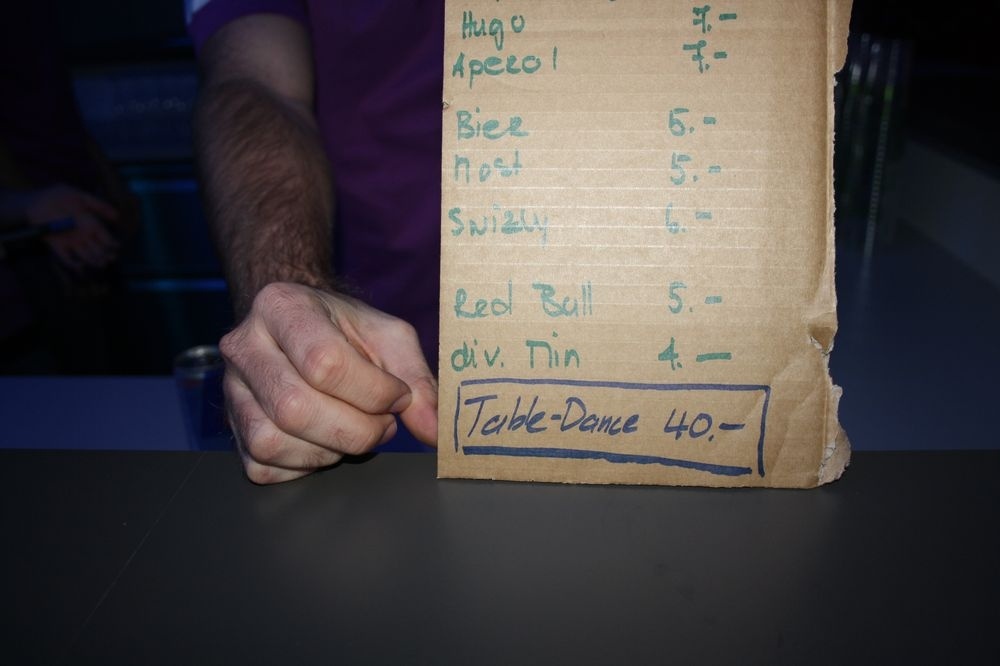 Hugo 7.-
Aperol 7.-
Bier 5.-
Most 5.-
Swizly 6.-
Red Bull 5.-
div. Min 4.-
Table-Dance 40.-